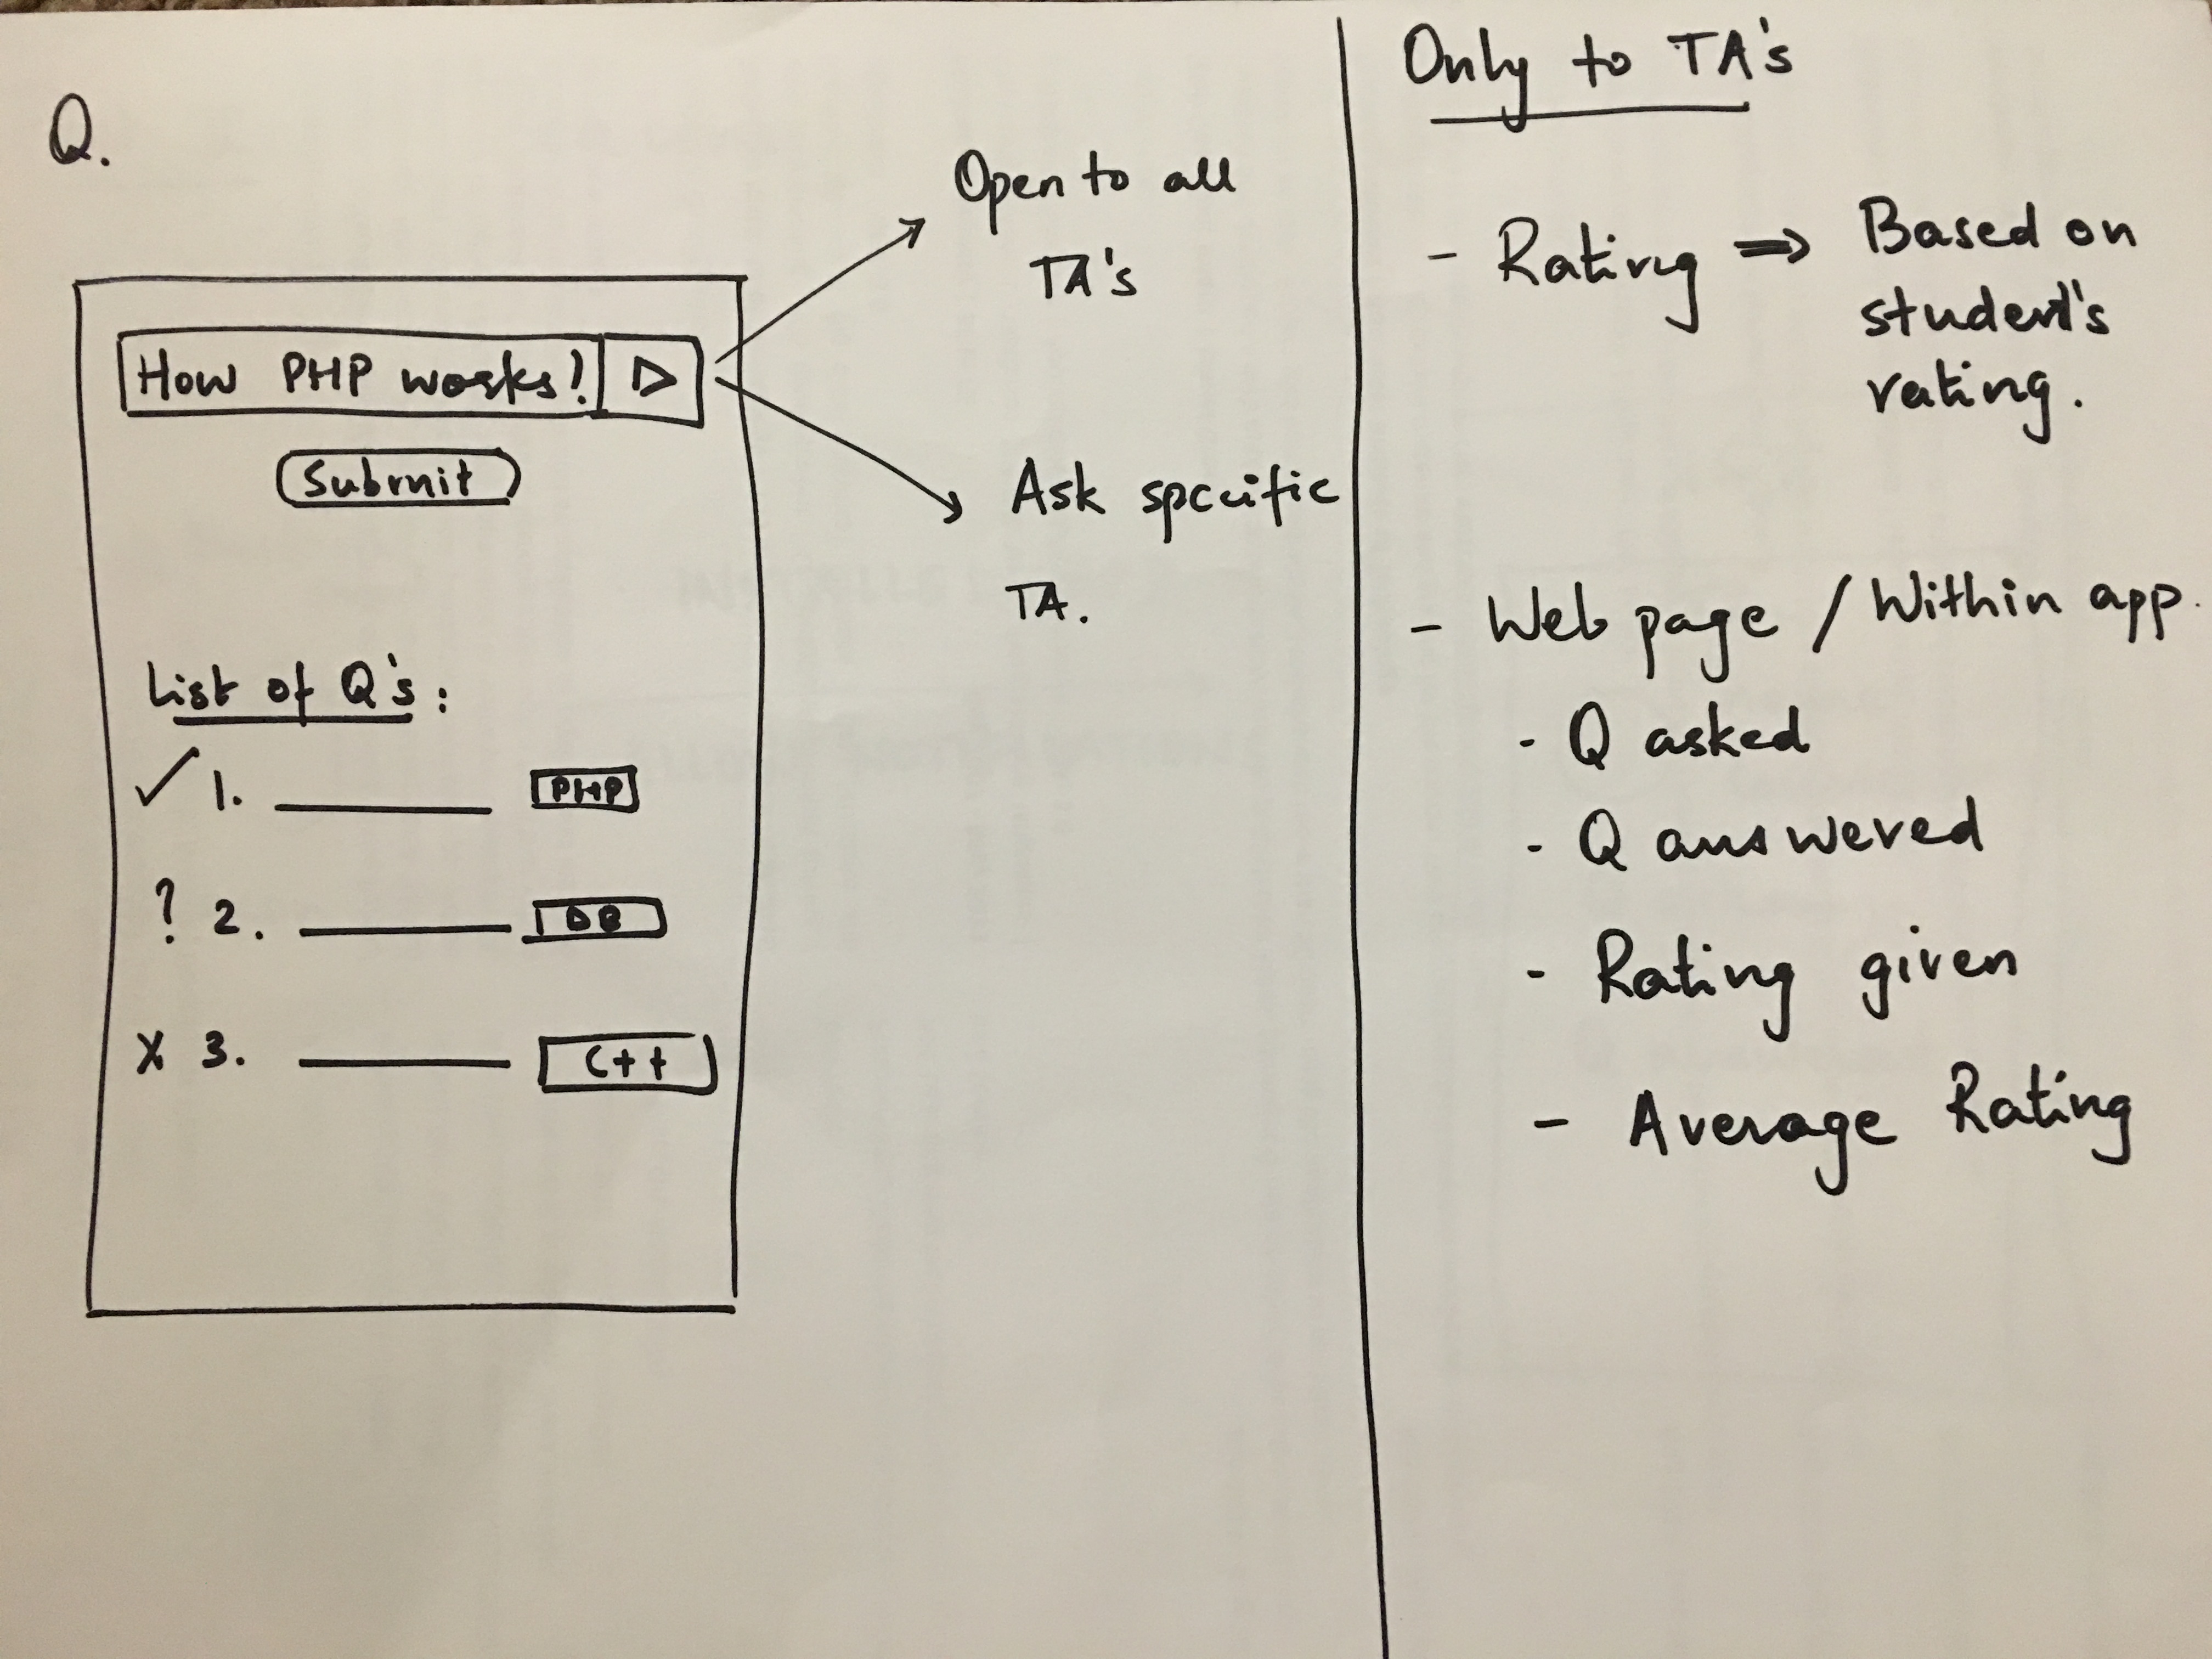 Q.
How PHP works?
Submit
List of Q's:
✓ 1. PHP
? 2. DB
X 3. C++
Open to all
TA's
Ask specific
TA.
Only to TA's
- Rating ⇒ Based on
student's
rating.
- Web page / Within app.
- Q asked
- Q answered
- Rating given
- Average Rating